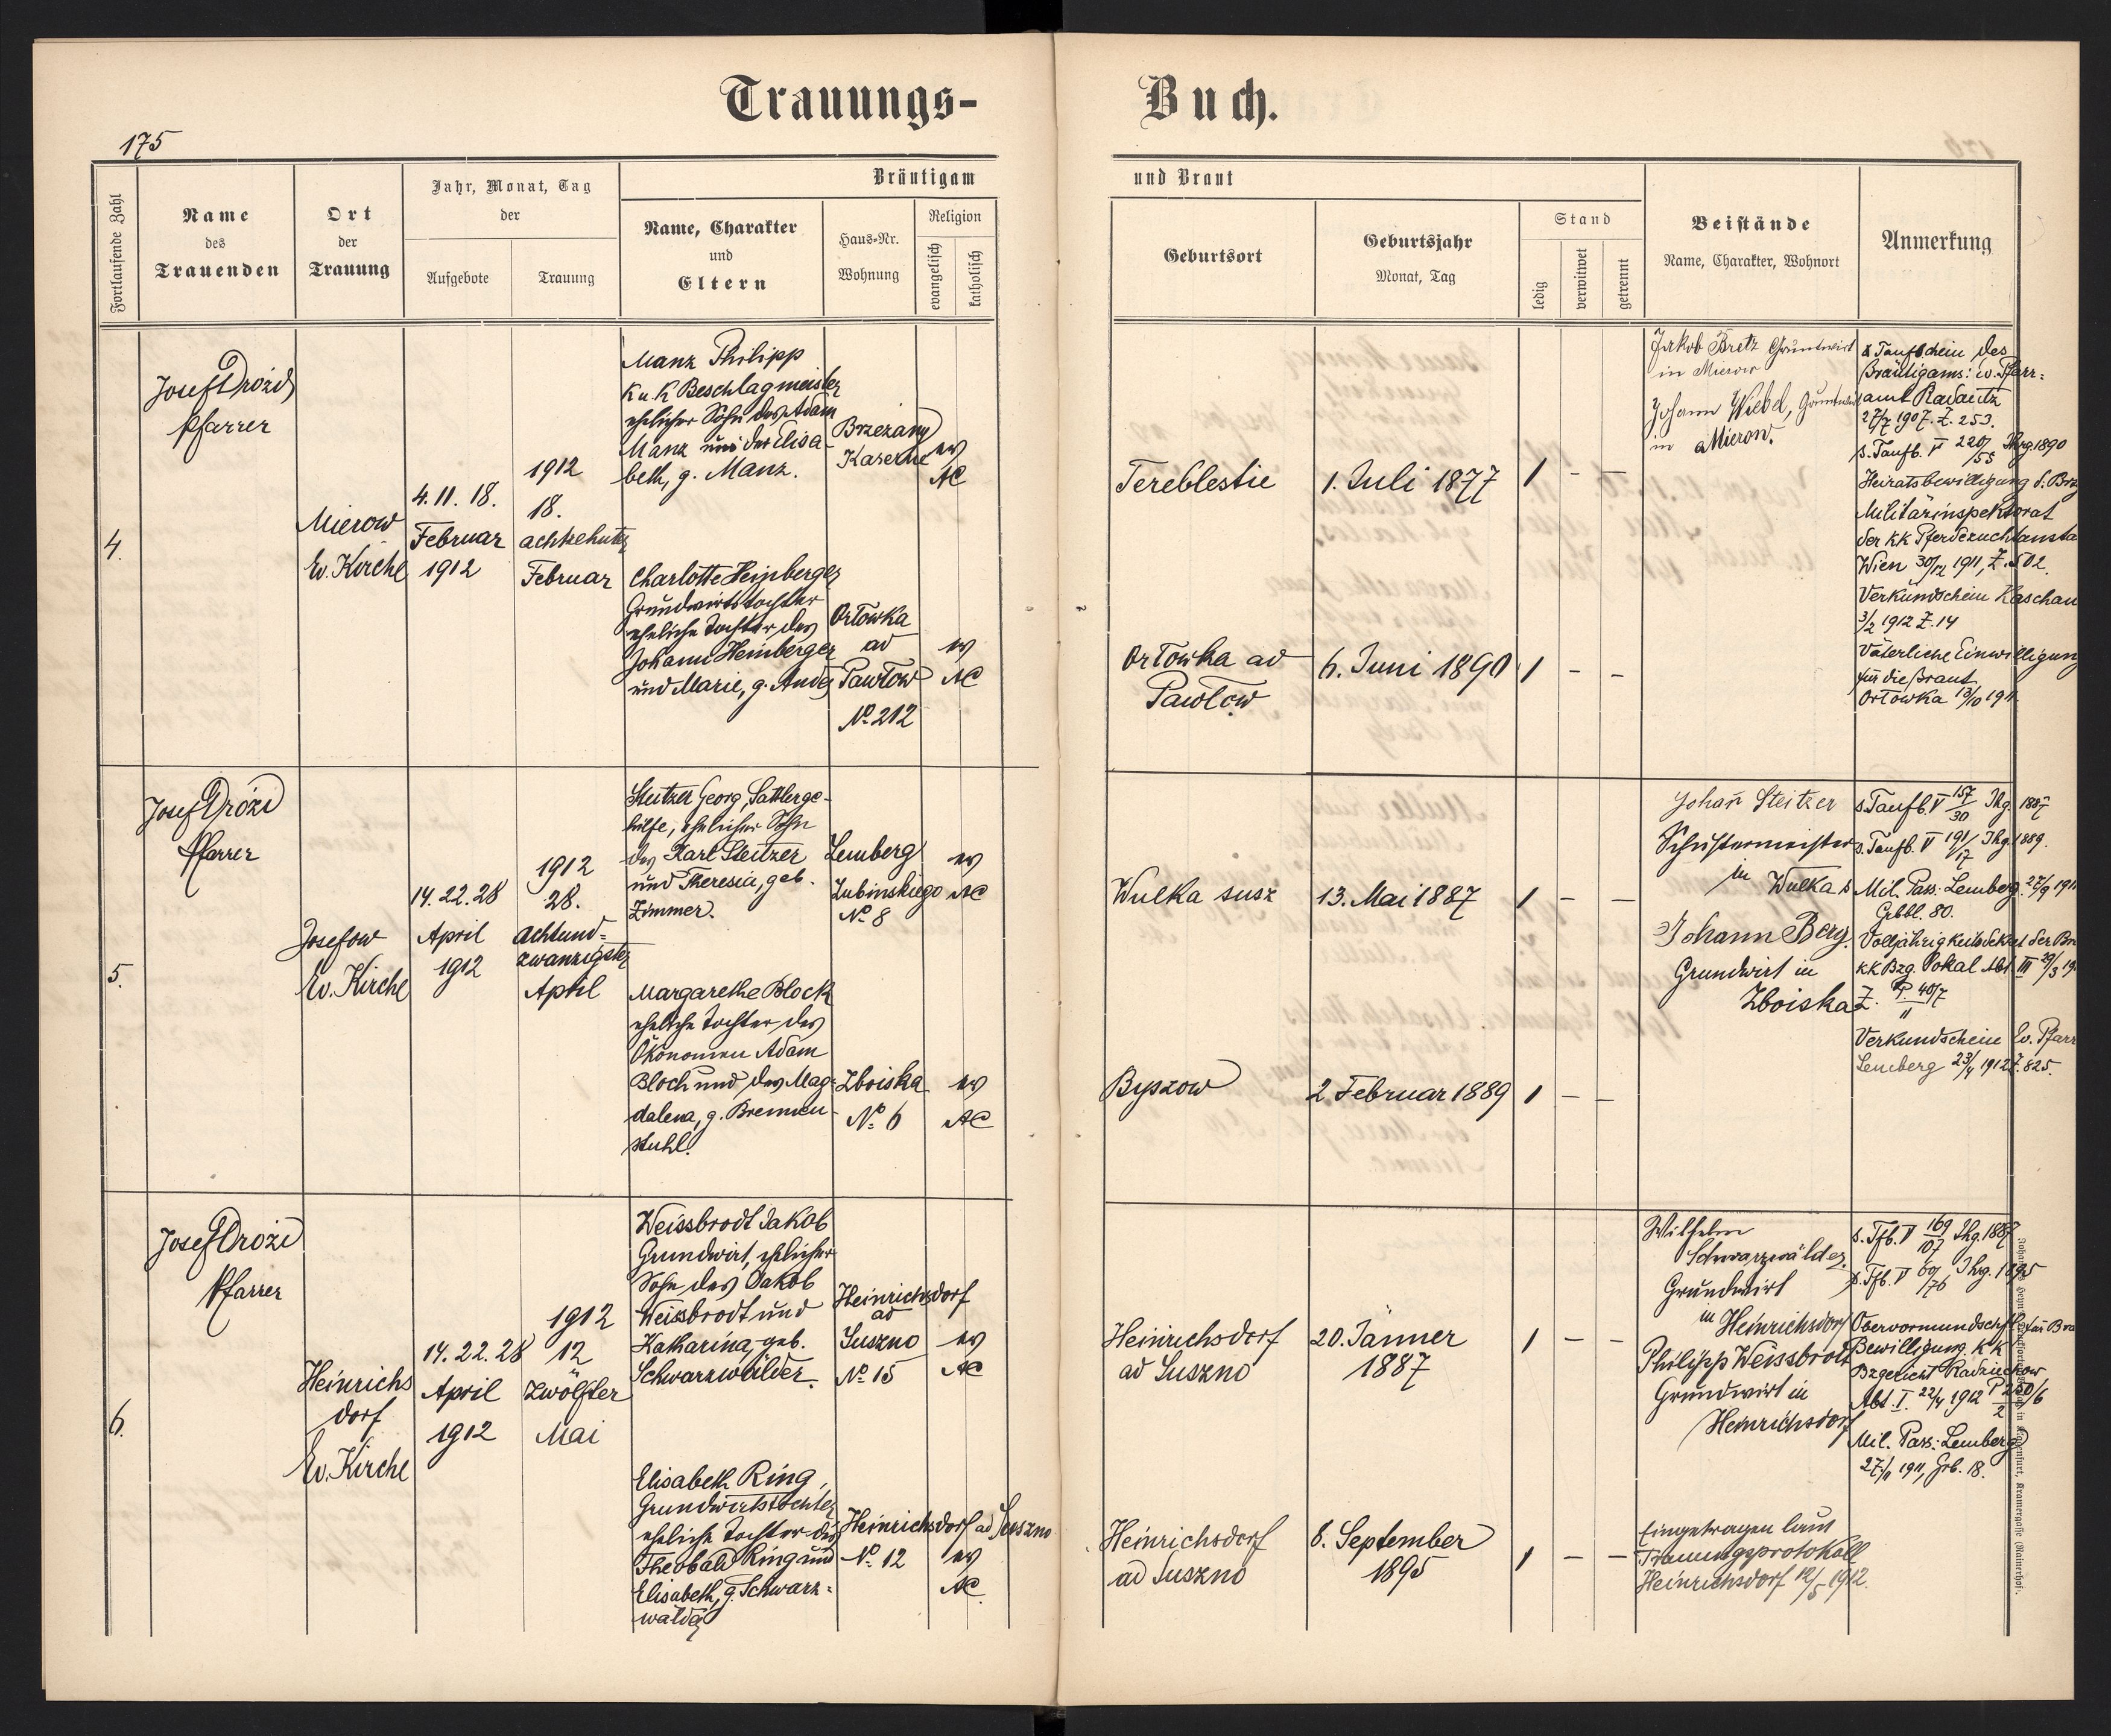 Trauungs-
Buch.
175
Fortlaufende Zahl
Name
des
Trauenden
Ort
der
Trauung
Jahr, Monat, Tag
der
Aufgebote
Trauung
Bräutigam
Name, Charakter
und
Eltern
Haus-Nr.
Wohnung
Religion
evangelisch
katholisch
und Braut
Geburtsort
Geburtsjahr
Monat, Tag
Stand
ledig
verwitwet
getrennt
Beistände
Name, Charakter, Wohnort
Anmerkung
4.
Josef Drozd
Pfarrer
Mierow
Ev. Kirche
4. 11. 18.
Februar
1912
1912
18.
achtzehnter
Februar
Manz Philipp
K u. K Beschlagmeister
ehelicher Sohn des Adam
Manz und der Elisa-
beth, g. Manz.
Brzezany
Kaserne
ev
AC
Charlotte Heinberger
Grundwirtstochter
eheliche Tochter des
Johann Heinberger
und Marie, g. Andes
Ortowka
ad
Pawtow
No. 212
ev
AC
Tereblestie
1. Juli 1877
1 - -
Ortowka ad
Pawtow
6. Juni 1890
1 - -
Jakob Bretz Grundwirt
in Mierow
Johann Wiebel, Grundwirt
in Mierow.
Taufschein des
Bräutigams: ev. Pfarr-
amt Radautz
27/7 1907. Z. 253.
s. Taufb. V 220/55 Jhrg. 1890
Heiratsbewilligung d. Brg
Militärinspektorat
der KK Pferdezuchtansta
Wien 30/12 1911, Z. 502.
Verkundschein Kaschau
3/2 1912 Z. 14
Väterliche Einwilligung
für die Braut
Ortowka 13/10 1911
5.
Josef Drozd
Pfarrer
Josefow
Ev. Kirche
14. 22. 28
April
1912
1912
28.
achtund-
zwanzigster
April
Steitzer Georg, Sattlerge-
hilfe, ehelicher Sohn
des Karl Steitzer
und Theresia, geb.
Zimmer.
Lemberg
Zubinskiego
No. 8
ev
AC
Margarethe Block
eheliche Tochter des
Ökonomen Adam
Bloch und des Mag-
dalena, g. Brennen-
stuhl.
Zboiska
No. 6
ev
AC
Wulka susz
13. Mai 1887
1 - -
Byszow
2 Februar 1889
1 - -
Johan̄ Steitzer
Schustermeister
in Wulka s
Johann Berg
Grundwirt in
Zboiska
s. Taufb. V 157/30 Jhg. 1887
s. Taufb. V 191/17 Jhg. 1889.
Mil. Pass: Lemberg. 27/9 1911
Grbbl. 80.
Volljährigkeitsdekret der Br
KK Bzg. Sokal Abt III 29/3 19
Z. P. 40/7
11
Verkundschein Ev. Pfarr
Lemberg 23/4 1912 Z. 825.
6.
Josef Drozd
Pfarrer
Heinrichs
dorf
Ev. Kirche
14. 22. 28
April
1912
1912
12
Zwölfter
Mai
Weissbrodt Jakob
Grundwirt, ehelicher
Sohn des Jakob
Weissbrodt und
Katharina, geb.
Schwarzwälder.
Heinrichsdorf
ad
Suszno
No. 15
ev
AC
Elisabeth Ring,
Grundwirtstochter
eheliche Tochter des
Theobald Ring und
Elisabeth, g. Schwarz-
wälder
Heinrichsdorf ad Suszno
No. 12
ev
AC
Heinrichsdorf
ad Suszno
20. Jänner
1887
1 - -
Heinrichsdorf
ad Suszno
8. September
1895
1 - -
Wilhelm
Schwarzwälder
Grundwirt
in Heinrichsdorf
Philipp Weissbrodt
Grundwirt in
Heinrichsdorf
Eingetragen laut
Trauungsprotokoll
Heinrichsdorf 12/5 1912.
s. Tfb. V 169/107 Jhg. 1887
s. Tfb. V 69/76 Jhrg. 1895
Obervormundschftl für Bra
Bewilligung. KK
Bzgericht Radziechow
Abt. I. 22/4 1912 P 250/6
2
Mil. Pass: Lemberg
27/11 1911, Grb. 18.